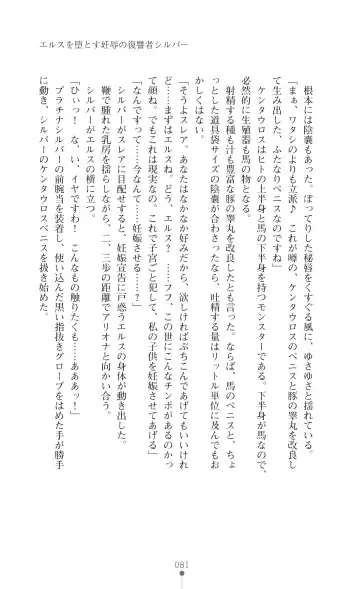 エルスを堕とす妊辱の復讐者シルバー
　根本には陰嚢もあった。ぼってりした秘唇をくすぐる風に、ゆさゆさと揺れている。
「まぁ、ワタシのよりも立派♪　これが噂の、ケンタウロスのペニスと豚の睾丸を改良し
て生み出した、ふたなりペニスなのですね」
　ケンタウロスはヒトの上半身と馬の下半身を持つモンスターである。下半身が馬なので、
必然的に生殖器も馬の物となる。
　射精する種も汁も豊富な豚の睾丸を改良したとも言った。ならば、馬のペニスと、ちょ
っとした道具袋サイズの陰嚢が合わさったなら、吐精する量はリットル単位に及んでもお
かしくはない。
「そうよスレア。あなたはなかなか好みだから、欲しければぶちこんであげてもいいけれ
ど……まずはエルスね。どう、エルス？……フフ、この世にこんなチンポがあるのかって
顔ね。でもこれは現実なの。これで子宮ごと犯して、私の子供を妊娠させてあげる」
「なんですって……今なんて……妊娠させる……？」
　シルバーがスレアに目配せすると、妊娠宣告に戸惑うエルスの身体が動き出した。
　鞭で腫れた乳房を揺らしながら、二、三歩の距離でアリオナと向かい合う。
　シルバーがエルスの横に立つ。
「ひぃっ！　な、イヤですわ！　こんなもの触りたくも……あああッ！」
　プラチナシルバーの前腕当を装着し、使い込んだ黒い指抜きグローブをはめた手が勝手
に動き、シルバーのケンタウロスペニスを扱き始めた。
081